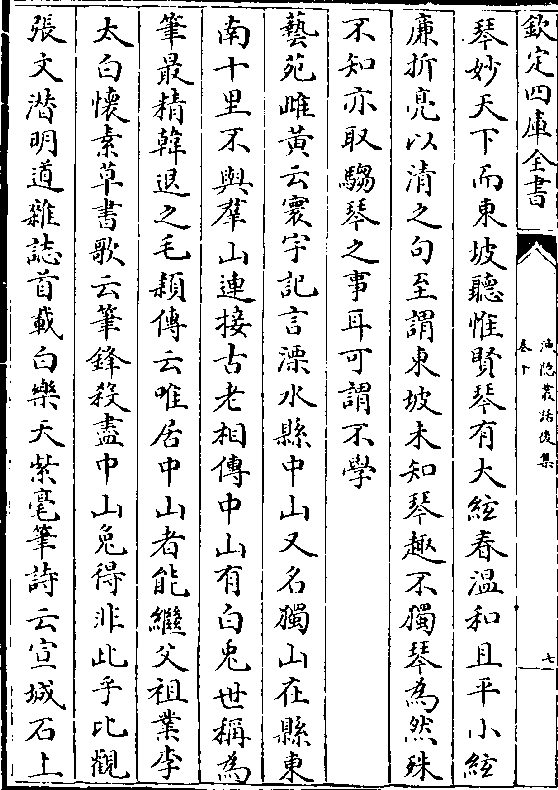 欽定四庫全書
漁隱叢話後集
卷十
七
琴妙天下而東坡聽惟賢琴有大絃春温和且平小絃
廉折亮以清之句至謂東坡未知琴趣不獨琴為然殊
不知亦取騶琴之事耳可謂不學
藝苑雌黄云寰宇記言溧水縣中山又名獨山在縣東
南十里不與羣山連接古老相傳中山有白兎世稱為
筆最精韓退之毛頴傳云唯居中山者能繼父祖業李
太白懷素草書歌云筆鋒殺盡中山兎得非此乎比觀
張文潛明道雜誌首載白樂天紫毫筆詩云宣城石上